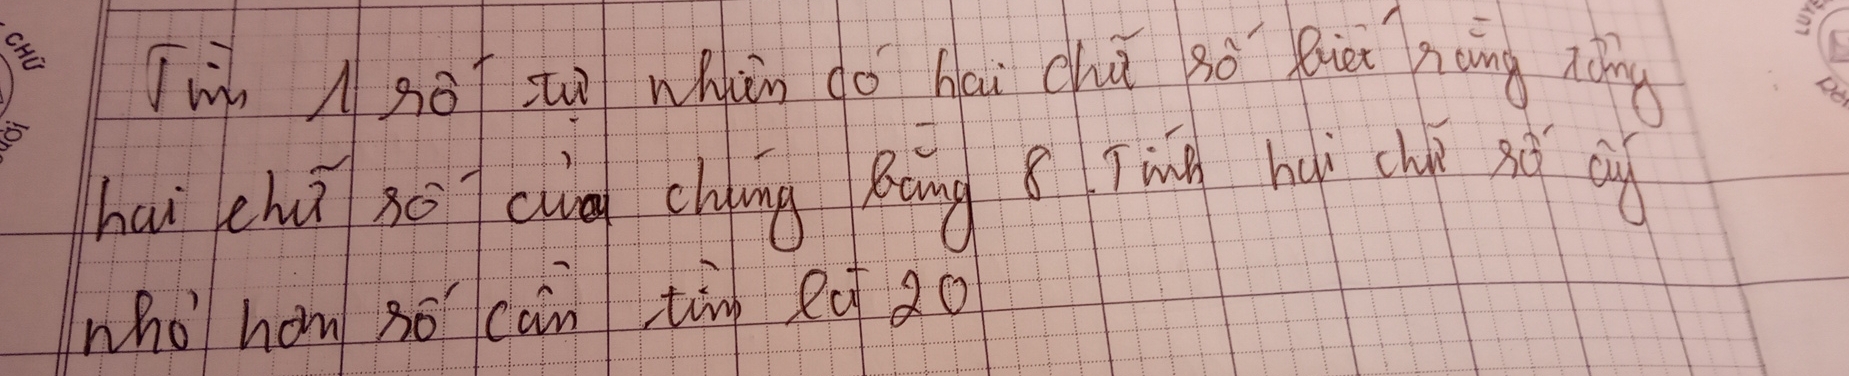 CHỮ
LUYỆ
Tìm 1 số tự nhiên có hai chữ số biết rằng tổng
hai chữ số của chúng bằng 8. Tính hai chữ số ấy
nhỏ hơn số cần tìm là 20